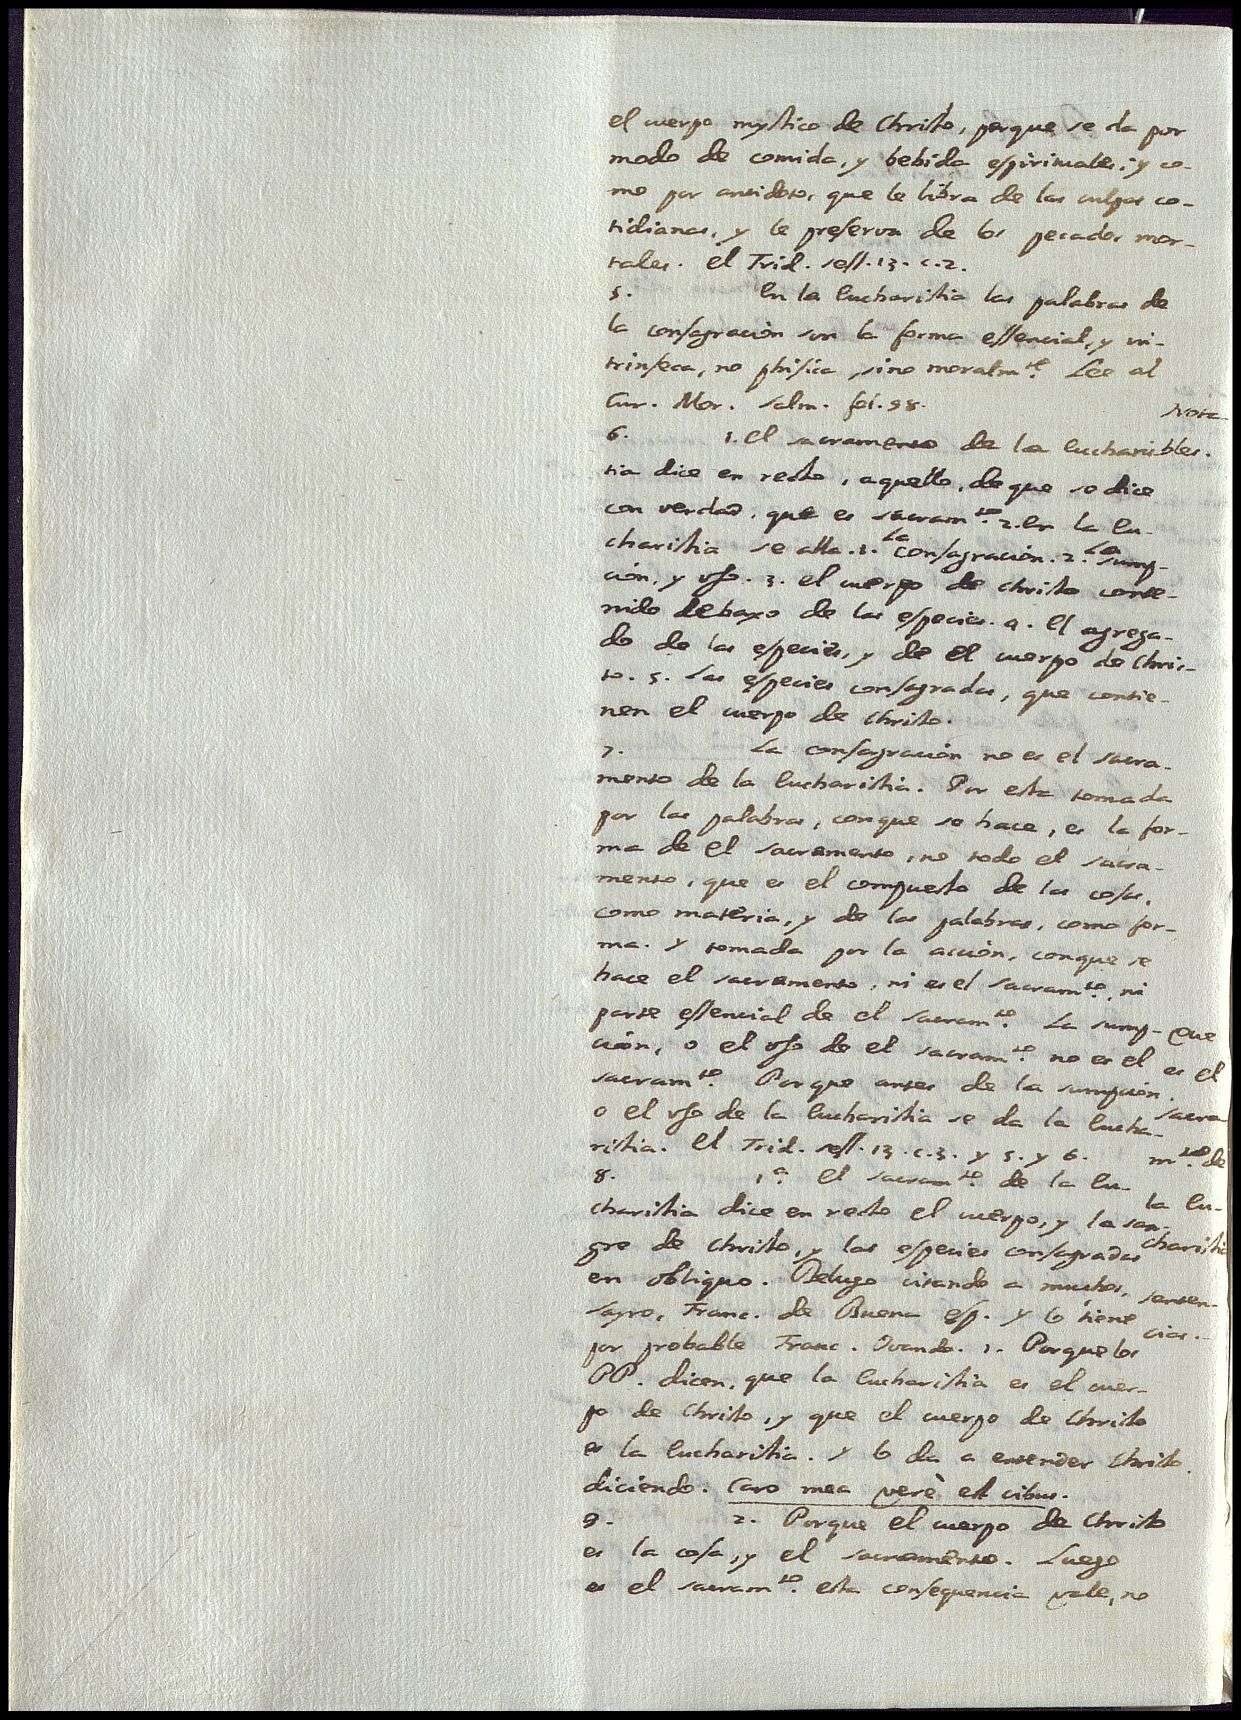 el cuerpo mystico de Christo, porque se da por
modo de comida, y bebida espirituales; y co-
mo por antidoto, que le libra de las culpas co-
tidianas, y le preserva de los pecados mor-
tales. el Trid. sess. 13. c. 2.
5. En la Eucharistia las palabras de
la consagracion son la forma essencial, y in-
trinseca, no phisica, sino moralm.te Lee al
Cur. Mor. Salm. fol. 98.
Nota-
bles.
6. 1. el sacramento de la Eucharis-
tia dice en recto, aquello, de que se dice
con verdad, que es sacram.to 2. en la Eu-
charistia se alla. 1. La consagracion. 2. La sump-
cion, y uso. 3. el cuerpo de Christo conte-
nido debaxo de las especies. 4. el agrega-
do de las especies, y de el cuerpo de Chris-
to. 5. Las especies consagradas, que contie-
nen el cuerpo de Christo.
7. La consagracion no es el sacra-
mento de la Eucharistia. Por esta tomada
por las palabras, conque se hace, es la for-
ma de el sacramento, no todo el sacra-
mento, que es el compuesto de las cosas,
como materia, y de las palabras, como for-
ma. y tomada por la accion, conque se
hace el sacramento, ni es el sacram.to, ni
parte essencial de el sacram.to La sump-
cion, o el uso de el sacram.to no es el
sacram.to Porque antes de la sumpcion,
o el uso de la Eucharistia se da la Eucha-
ristia. el Trid. sess. 13. c. 3. y 5. y 6.
Que
es el
sacra
m.to de
la Eu-
charistia
senten-
cias.
8. 1.a el sacram.to de la Eu-
charistia dice en recto el cuerpo, y la san-
gre de Christo, y las especies consagradas
en obliquo. Delugo citando a muchos,
Sayro, Franc. de Buena esp. y lo tiene
por probable Franc. Ovando. 1. Porque los
PP. dicen, que la Eucharistia es el cuer-
po de Christo, y que el cuerpo de Christo
es la Eucharistia. y lo da a entender Christo
diciendo. Caro mea verè est cibus.
9. 2. Porque el cuerpo de Christo
es la cosa, y el sacramento. Luego
es el sacram.to esta consequencia vale, no